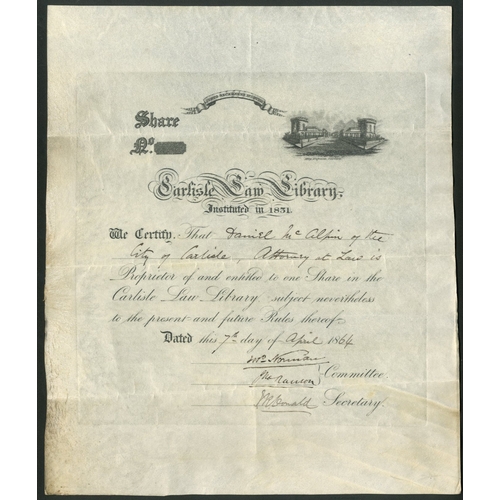 Share
No.
Carlisle Law Library,
Instituted in 1851.
We Certify, That Daniel Mc Alpin of the
City of Carlisle, Attorney at Law is
Proprietor of and entitled to one Share in the
Carlisle Law Library subject nevertheless
to the present and future Rules thereof
Dated this 7th day of April 1864
Wm Norman
Committee.
McDonald Secretary.